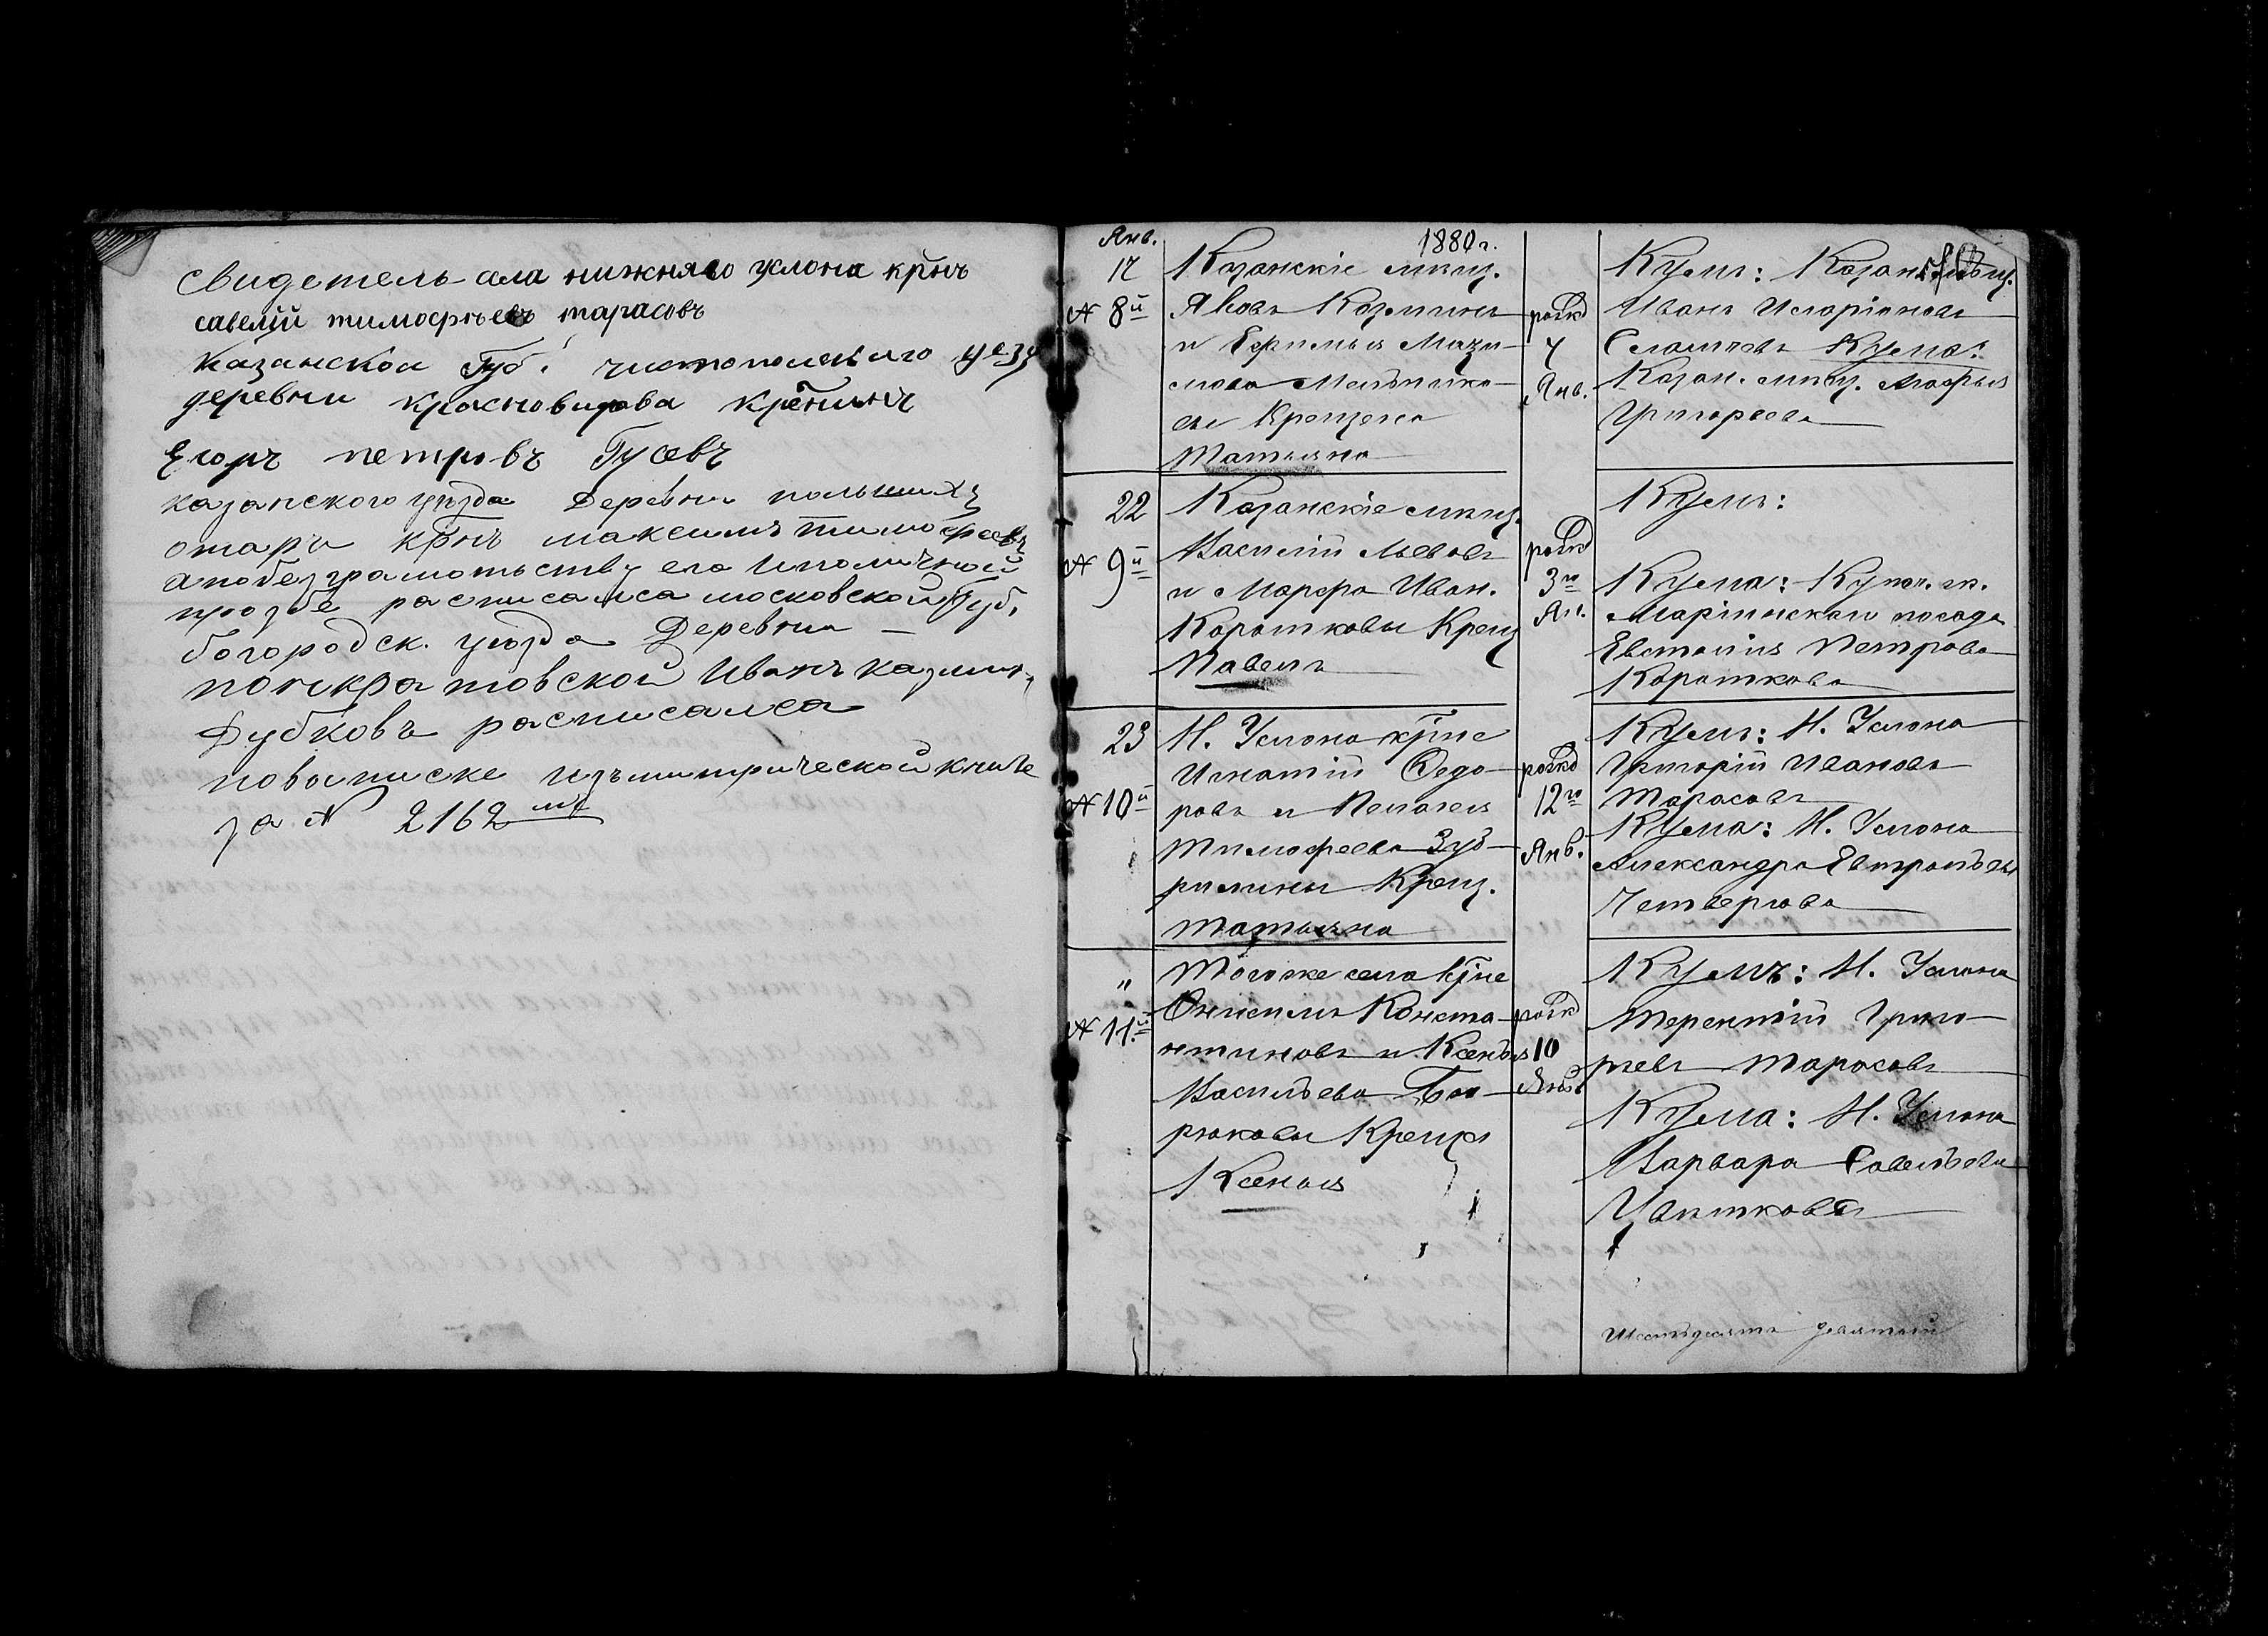 свидетель села нижняго услона крнъ
савелій тимофѣевъ тарасовъ
Казанской Губ. чистопольскаго уезд
деревни красновидова крестнинъ
Егоръ петровъ Гусевъ
казанского уѣзда Деревни польшихъ
отары крнъ максимъ тимофеевъ
а по безграмотьству его и поличной
прозбе росписался московской Губ.
богородск. уѣзда Деревни –
понкратовской Иванъ казмин.
Дубковъ росписался
по вописке изъ митрической книге
за № 2162 мъ
Янв. 1880 г.
17 Казанскіе мѣщ.
№ 8й Яковъ Козминъ
и Ефимья Макси-
мова Мельнико-
вы Крещена
Татьяна
рожд
4
Янв.
Кумъ: Казан. мѣщ.
Иванъ Иларіоновъ
Кума:
Казан. мѣщ. Марья
Григорьева
22 Казанскіе мѣщ.
№ 9й Василій Львовъ
и Марфа Иван.
Коротковы Крещ
Павелъ
рожд
3го
Ян.
Кумъ:
Кума: Купч. ж.
Маріинскаго посада
Евстолія Петрова
Короткова
23 Н. Услона крне
Игнатій Ѳедо-
№ 10й ровъ и Пелагея
Тимофеева Зуб-
рилины Крещ.
Татьяна
рожд
12го
Янв.
Кумъ: Н. Услона
Григорій Ивановъ
Тарасовъ
Кума: Н. Услона
Александра Евграфова
Четвергова
" Тогоже села крне
№ 11й Онисимъ Конста-
нтиновъ и Ксенья
Васильева Би-
рюковы Крещ
Ксенья
рожд
10
Янв.
Кумъ: Н. Услона
Терентій Григо-
рьевъ Тарасовъ
Кума: Н. Услона
Варвара Савельева
Цвѣткова
Шестьдесятъ девятый